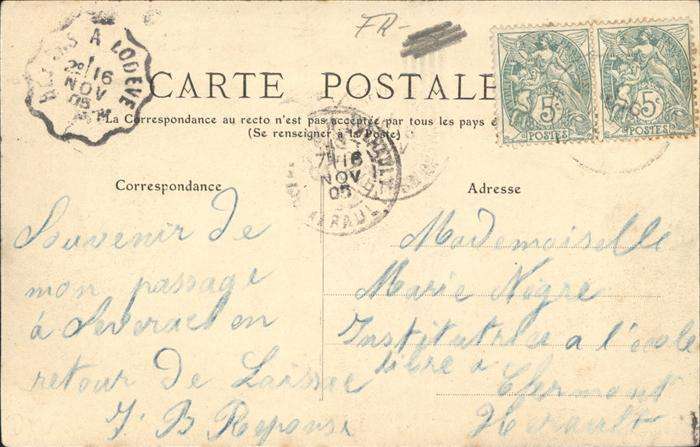 FR-
A LODÈVE
16
NOV
05
CARTE POSTALE
La Correspondance au recto n'est pas acceptée par tous les pays
(Se renseigner à la Poste)
5c
POSTES
5c
POSTES
16
NOV
05
HERAULT
Correspondance
Adresse
Souvenir de
mon passage
à Severac en
retour de Laissac
J. B Reponse
Mademoiselle
Marie Nègre
Institutrice a l'école
à
Clermont
Herault